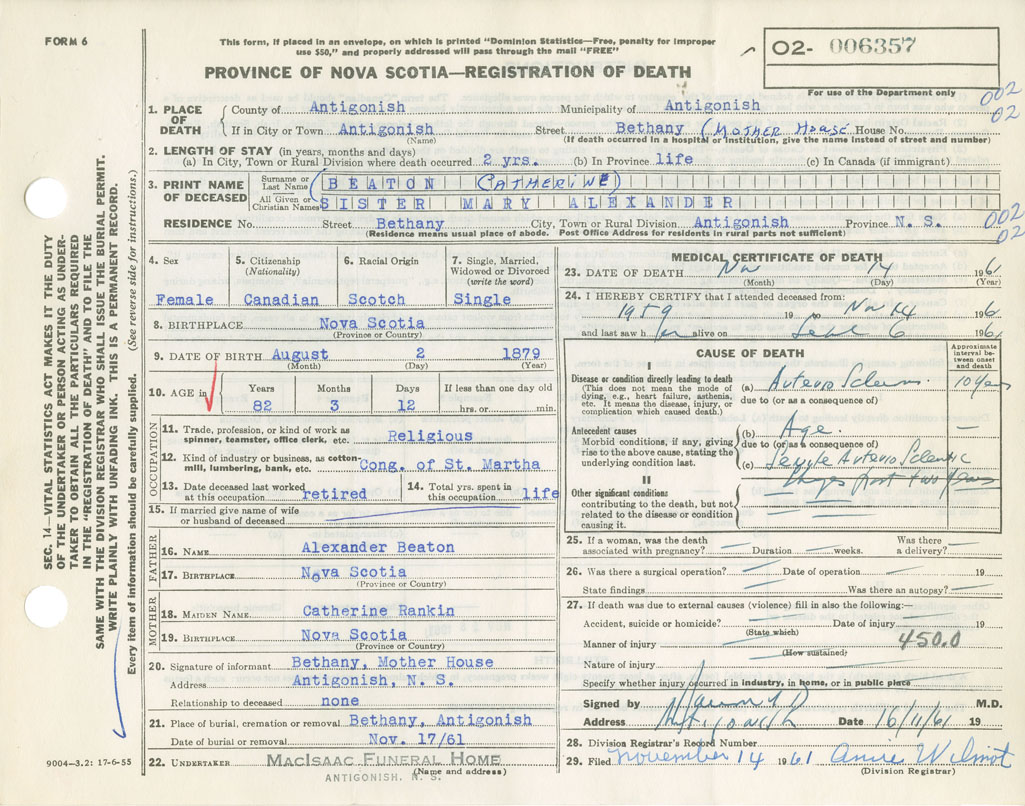 FORM 6
This form, if placed in an envelope, on which is printed "Dominion Statistics—Free, penalty for improper
use $50," and properly addressed will pass through the mail "FREE"
PROVINCE OF NOVA SCOTIA—REGISTRATION OF DEATH
02- 006357
For use of the Department only
002
02
1. PLACE OF DEATH
County of Antigonish Municipality of Antigonish
If in City or Town Antigonish Street Bethany (MOTHER HOUSE House No.
(Name) (If death occurred in a hospital or institution, give the name instead of street and number)
2. LENGTH OF STAY (in years, months and days)
(a) In City, Town or Rural Division where death occurred 2 yrs. (b) In Province life (c) In Canada (if immigrant)
3. PRINT NAME OF DECEASED
Surname or Last Name (BEATON (CATHERINE)
All Given or Christian Names SISTER MARY ALEXANDER
RESIDENCE No. Street Bethany City, Town or Rural Division Antigonish Province N. S.
(Residence means usual place of abode. Post Office Address for residents in rural parts not sufficient)
002
02
4. Sex
Female
5. Citizenship
(Nationality)
Canadian
6. Racial Origin
Scotch
7. Single, Married,
Widowed or Divorced
(write the word)
Single
8. BIRTHPLACE Nova Scotia
(Province or Country)
9. DATE OF BIRTH August 2 1879
(Month) (Day) (Year)
10. AGE in
Years Months Days If less than one day old
82 3 12 hrs. or min.
OCCUPATION
11. Trade, profession, or kind of work as
spinner, teamster, office clerk, etc. Religious
12. Kind of industry or business, as cotton-
mill, lumbering, bank, etc. Cong. of St. Martha
13. Date deceased last worked
at this occupation retired
14. Total yrs. spent in
this occupation life
15. If married give name of wife
or husband of deceased
FATHER
16. NAME Alexander Beaton
17. BIRTHPLACE Nova Scotia
(Province or Country)
MOTHER
18. MAIDEN NAME Catherine Rankin
19. BIRTHPLACE Nova Scotia
(Province or Country)
20. Signature of informant Bethany, Mother House
Address Antigonish, N. S.
Relationship to deceased none
21. Place of burial, cremation or removal Bethany, Antigonish
Date of burial or removal Nov. 17/61
22. UNDERTAKER MACISAAC FUNERAL HOME
(Name and address)
ANTIGONISH, N. S.
MEDICAL CERTIFICATE OF DEATH
23. DATE OF DEATH Nov 14 1961
(Month) (Day) (Year)
24. I HEREBY CERTIFY that I attended deceased from:
1959 19 to Nov 14 1961
and last saw her alive on 6 1961
CAUSE OF DEATH
Approximate
interval be-
tween onset
and death
I
Disease or condition directly leading to death
(This does not mean the mode of
dying, e.g., heart failure, asthenia,
etc. It means the disease, injury, or
complication which caused death.)
(a) Arterio Sclerosis 10 years
due to (or as a consequence of)
Antecedent causes
Morbid conditions, if any, giving
rise to the above cause, stating the
underlying condition last.
(b) Age. —
due to (or as a consequence of)
(c) Senile Arterio Sclerotic
past two years
II
Other significant conditions
contributing to the death, but not
related to the disease or condition
causing it.
25. If a woman, was the death
associated with pregnancy? — Duration — weeks.
Was there
a delivery? —
26. Was there a surgical operation? — Date of operation — 19
State findings — Was there an autopsy? —
27. If death was due to external causes (violence) fill in also the following:—
Accident, suicide or homicide? — Date of injury — 19
(State which)
450.0
Manner of injury
(How sustained)
Nature of injury
Specify whether injury occurred in industry, in home, or in public place
Signed by M.D.
Address Antigonish Date 16/11/61 19
28. Division Registrar's Record Number
29. Filed november 14 1961 Annie Wilmot
(Division Registrar)
SEC. 14—VITAL STATISTICS ACT MAKES IT THE DUTY
OF THE UNDERTAKER OR PERSON ACTING AS UNDER-
TAKER TO OBTAIN ALL THE PARTICULARS REQUIRED
IN THE "REGISTRATION OF DEATH" AND TO FILE THE
SAME WITH THE DIVISION REGISTRAR WHO SHALL ISSUE THE BURIAL PERMIT.
WRITE PLAINLY WITH UNFADING INK. THIS IS A PERMANENT RECORD.
Every item of information should be carefully supplied. (See reverse side for instructions.)
9004—3.2: 17-6-55